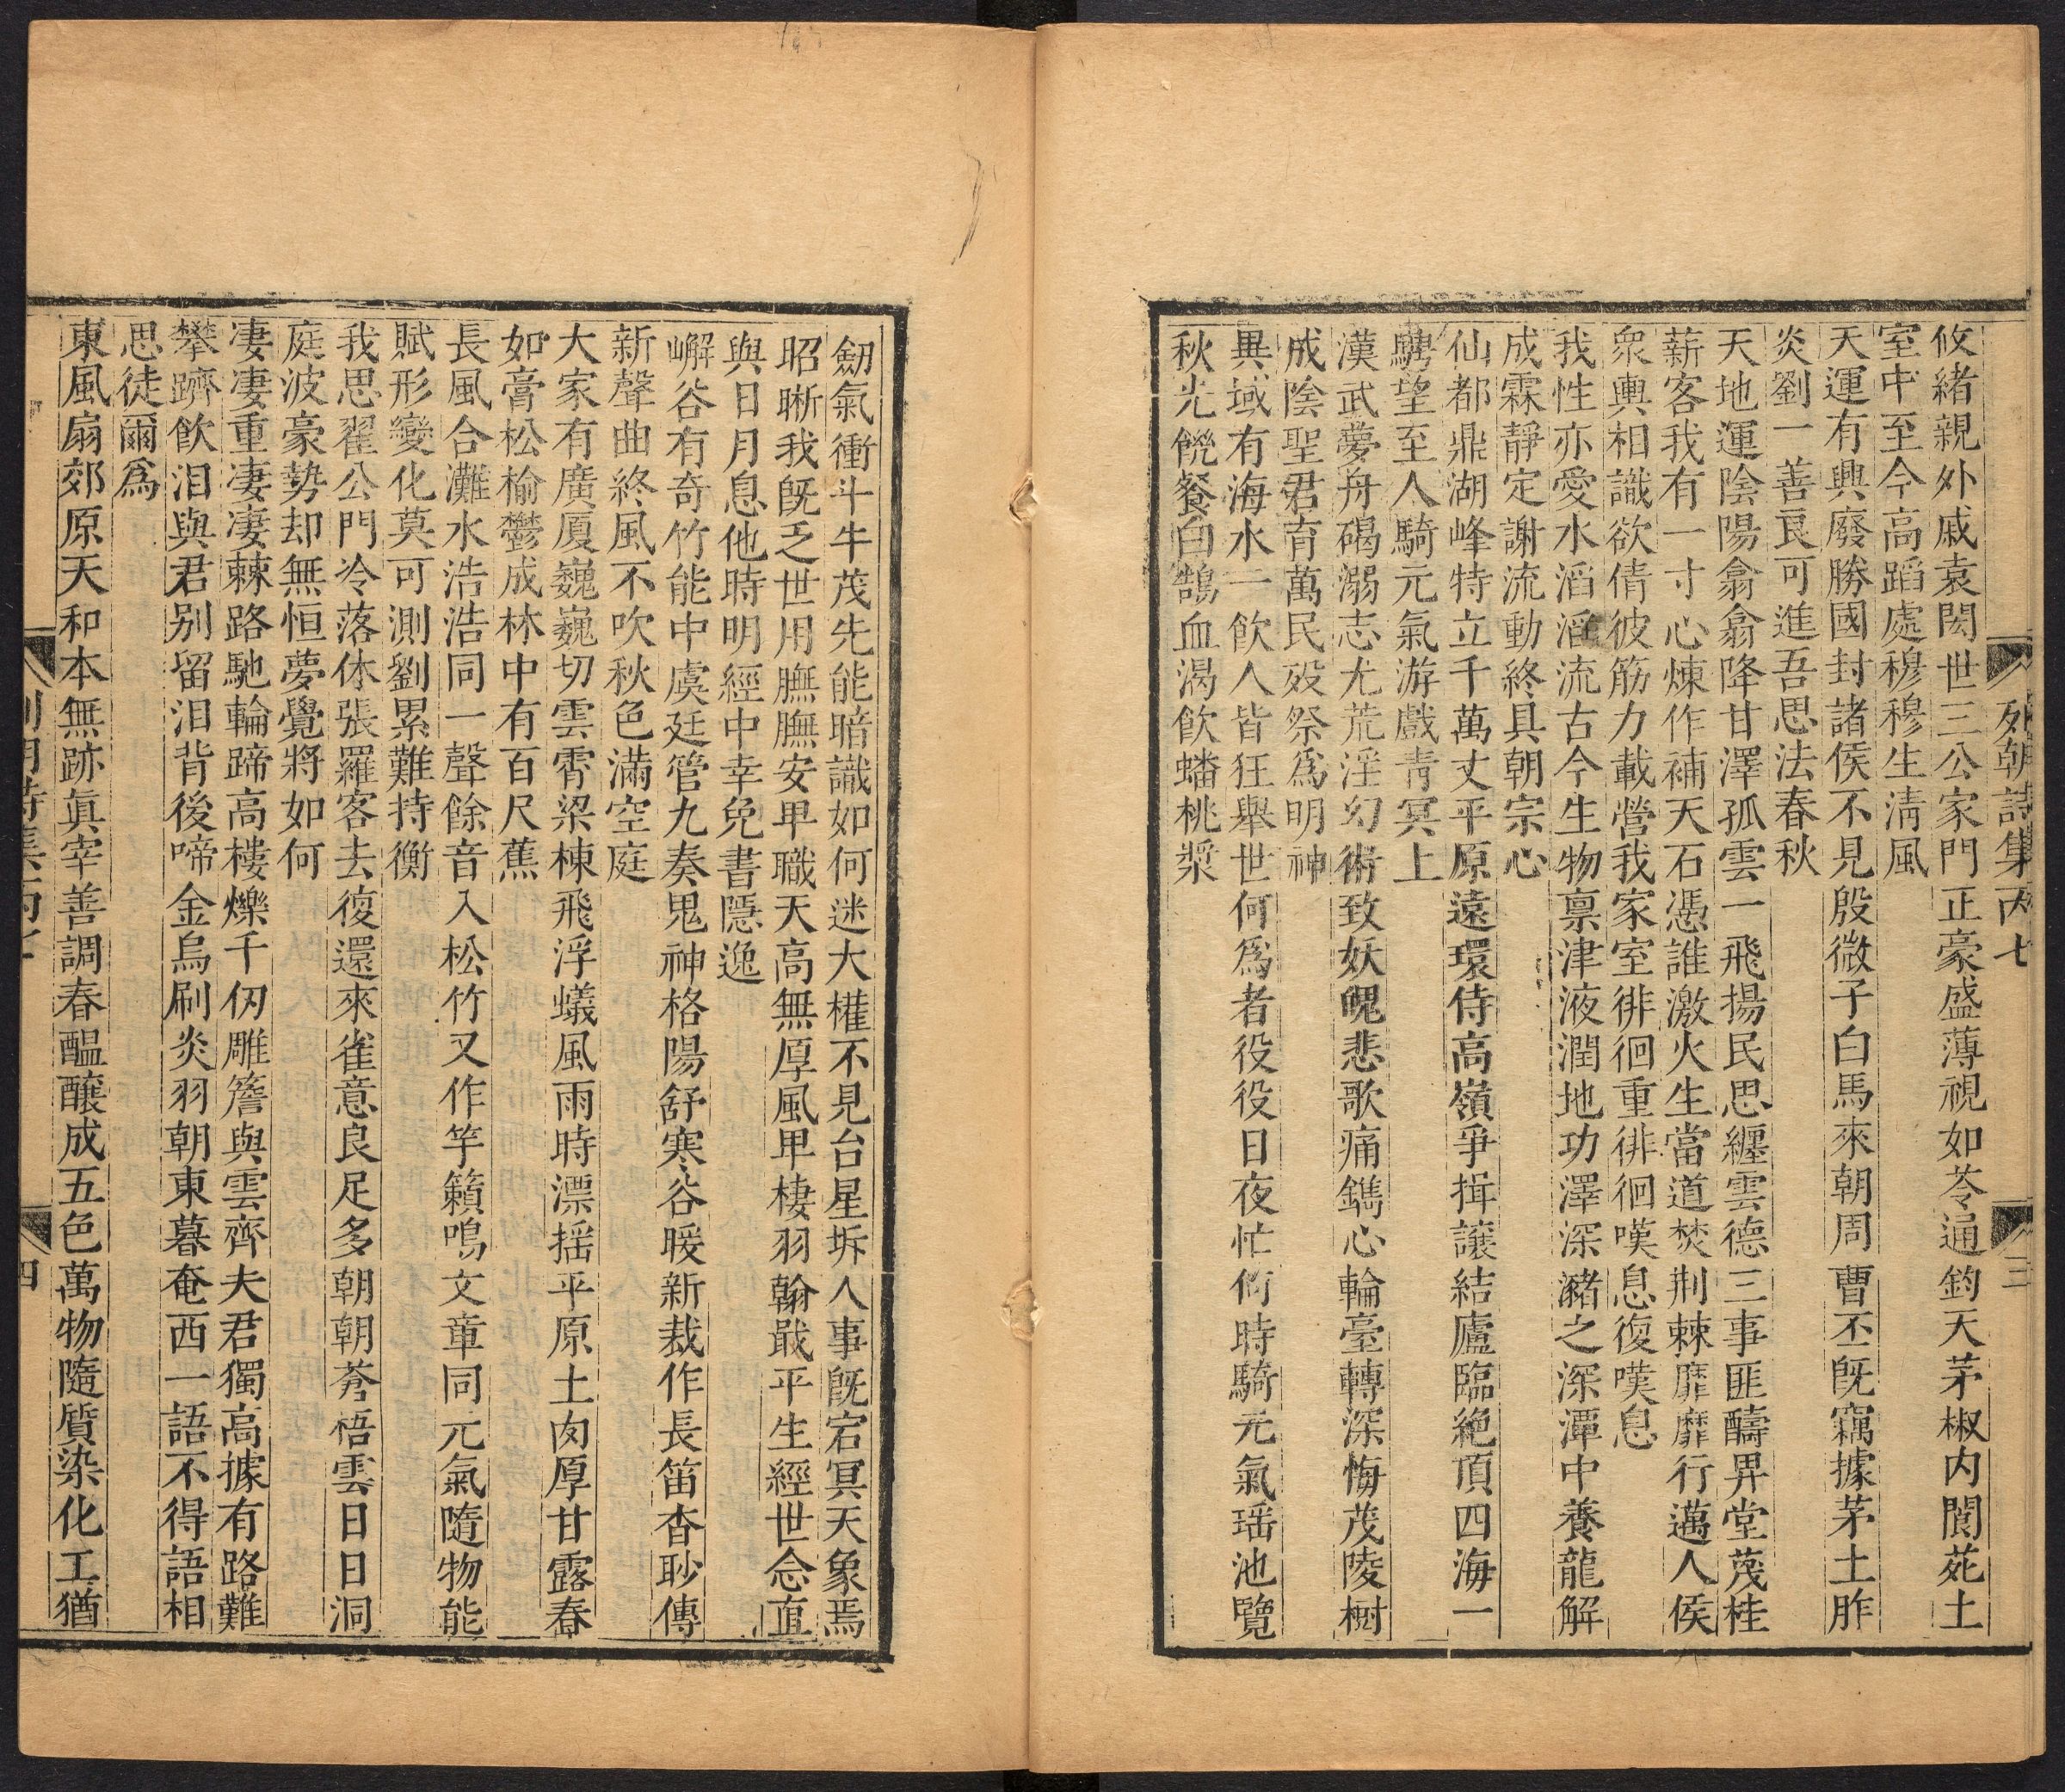 列朝詩集丙七
三
攸緒親外戚袁閎世三公家門正豪盛薄視如苓通釣天茅椒内閬苑土
室中至今高蹈處穆穆生淸風
天運有興廢勝國封諸侯不見殷微子白馬來朝周曹丕旣竊據茅土胙
炎劉一善良可進吾思法春秋
天地運陰陽翕翕降甘澤孤雲一飛揚民思纏雲德三事匪疇畀堂茂桂
薪客我有一寸心煉作補天石憑誰激火生當道焚荆棘靡靡行邁人侯
衆輿相識欲倩彼筋力載營我家室徘徊重徘徊嘆息復嘆息
我性亦愛水滔滔流古今生物禀津液潤地功澤深瀦之深潭中養龍解
成霖靜定謝流動終具朝宗心
仙都鼎湖峰特立千萬丈平原遠環侍高嶺爭揖讓結廬臨絶頂四海一
騁望至人騎元氣游戲青冥上
漢武夢舟碣溺志尤荒淫幻術致妖魄悲歌痛鐫心輪臺轉深悔茂陵樹
成陰聖君育萬民殁祭爲明神
異域有海水一飲人皆狂舉世何爲者役役日夜忙何時騎元氣瑶池覽
秋光饑餐白鵠血渴飲蟠桃漿
劒氣衝斗牛茂先能暗識如何迷大權不見台星坼人事旣宕冥天象焉
昭晰我旣乏世用膴膴安卑職天高無厚風卑棲羽翰戢平生經世念直
與日月息他時明經中幸免書隱逸
嶰谷有奇竹能中虞廷管九奏鬼神格陽舒寒谷暖新裁作長笛杳眇傳
新聲曲終風不吹秋色滿空庭
大家有廣厦巍巍切雲霄梁棟飛浮蟻風雨時漂摇平原土肉厚甘露春
如膏松榆鬱成林中有百尺蕉
長風合灘水浩浩同一聲餘音入松竹又作竽籟鳴文章同元氣隨物能
賦形變化莫可測劉累難持衡
我思翟公門冷落休張羅客去復還來雀意良足多朝朝蒼梧雲日日洞
庭波豪勢却無恒夢覺將如何
凄凄重凄凄棘路馳輪蹄高樓爍千仞雕簷與雲齊夫君獨高據有路難
攀躋飲泪與君别留泪背後啼金烏刷炎羽朝東暮奄西一語不得語相
思徒爾爲
東風扇郊原天和本無跡眞宰善調春醖釀成五色萬物隨質染化工猶
列朝詩集丙七
四